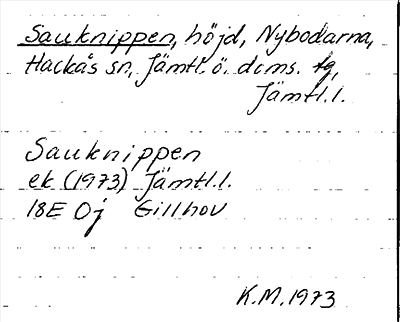 Sauknippen, höjd, Nybodarna,
Hackås sn, Jämtl. ö. doms. tg,
Jämtl.l.
Sauknippen
ek (1973) Jämtl.l.
18E Oj Gillhov
K.M. 1973